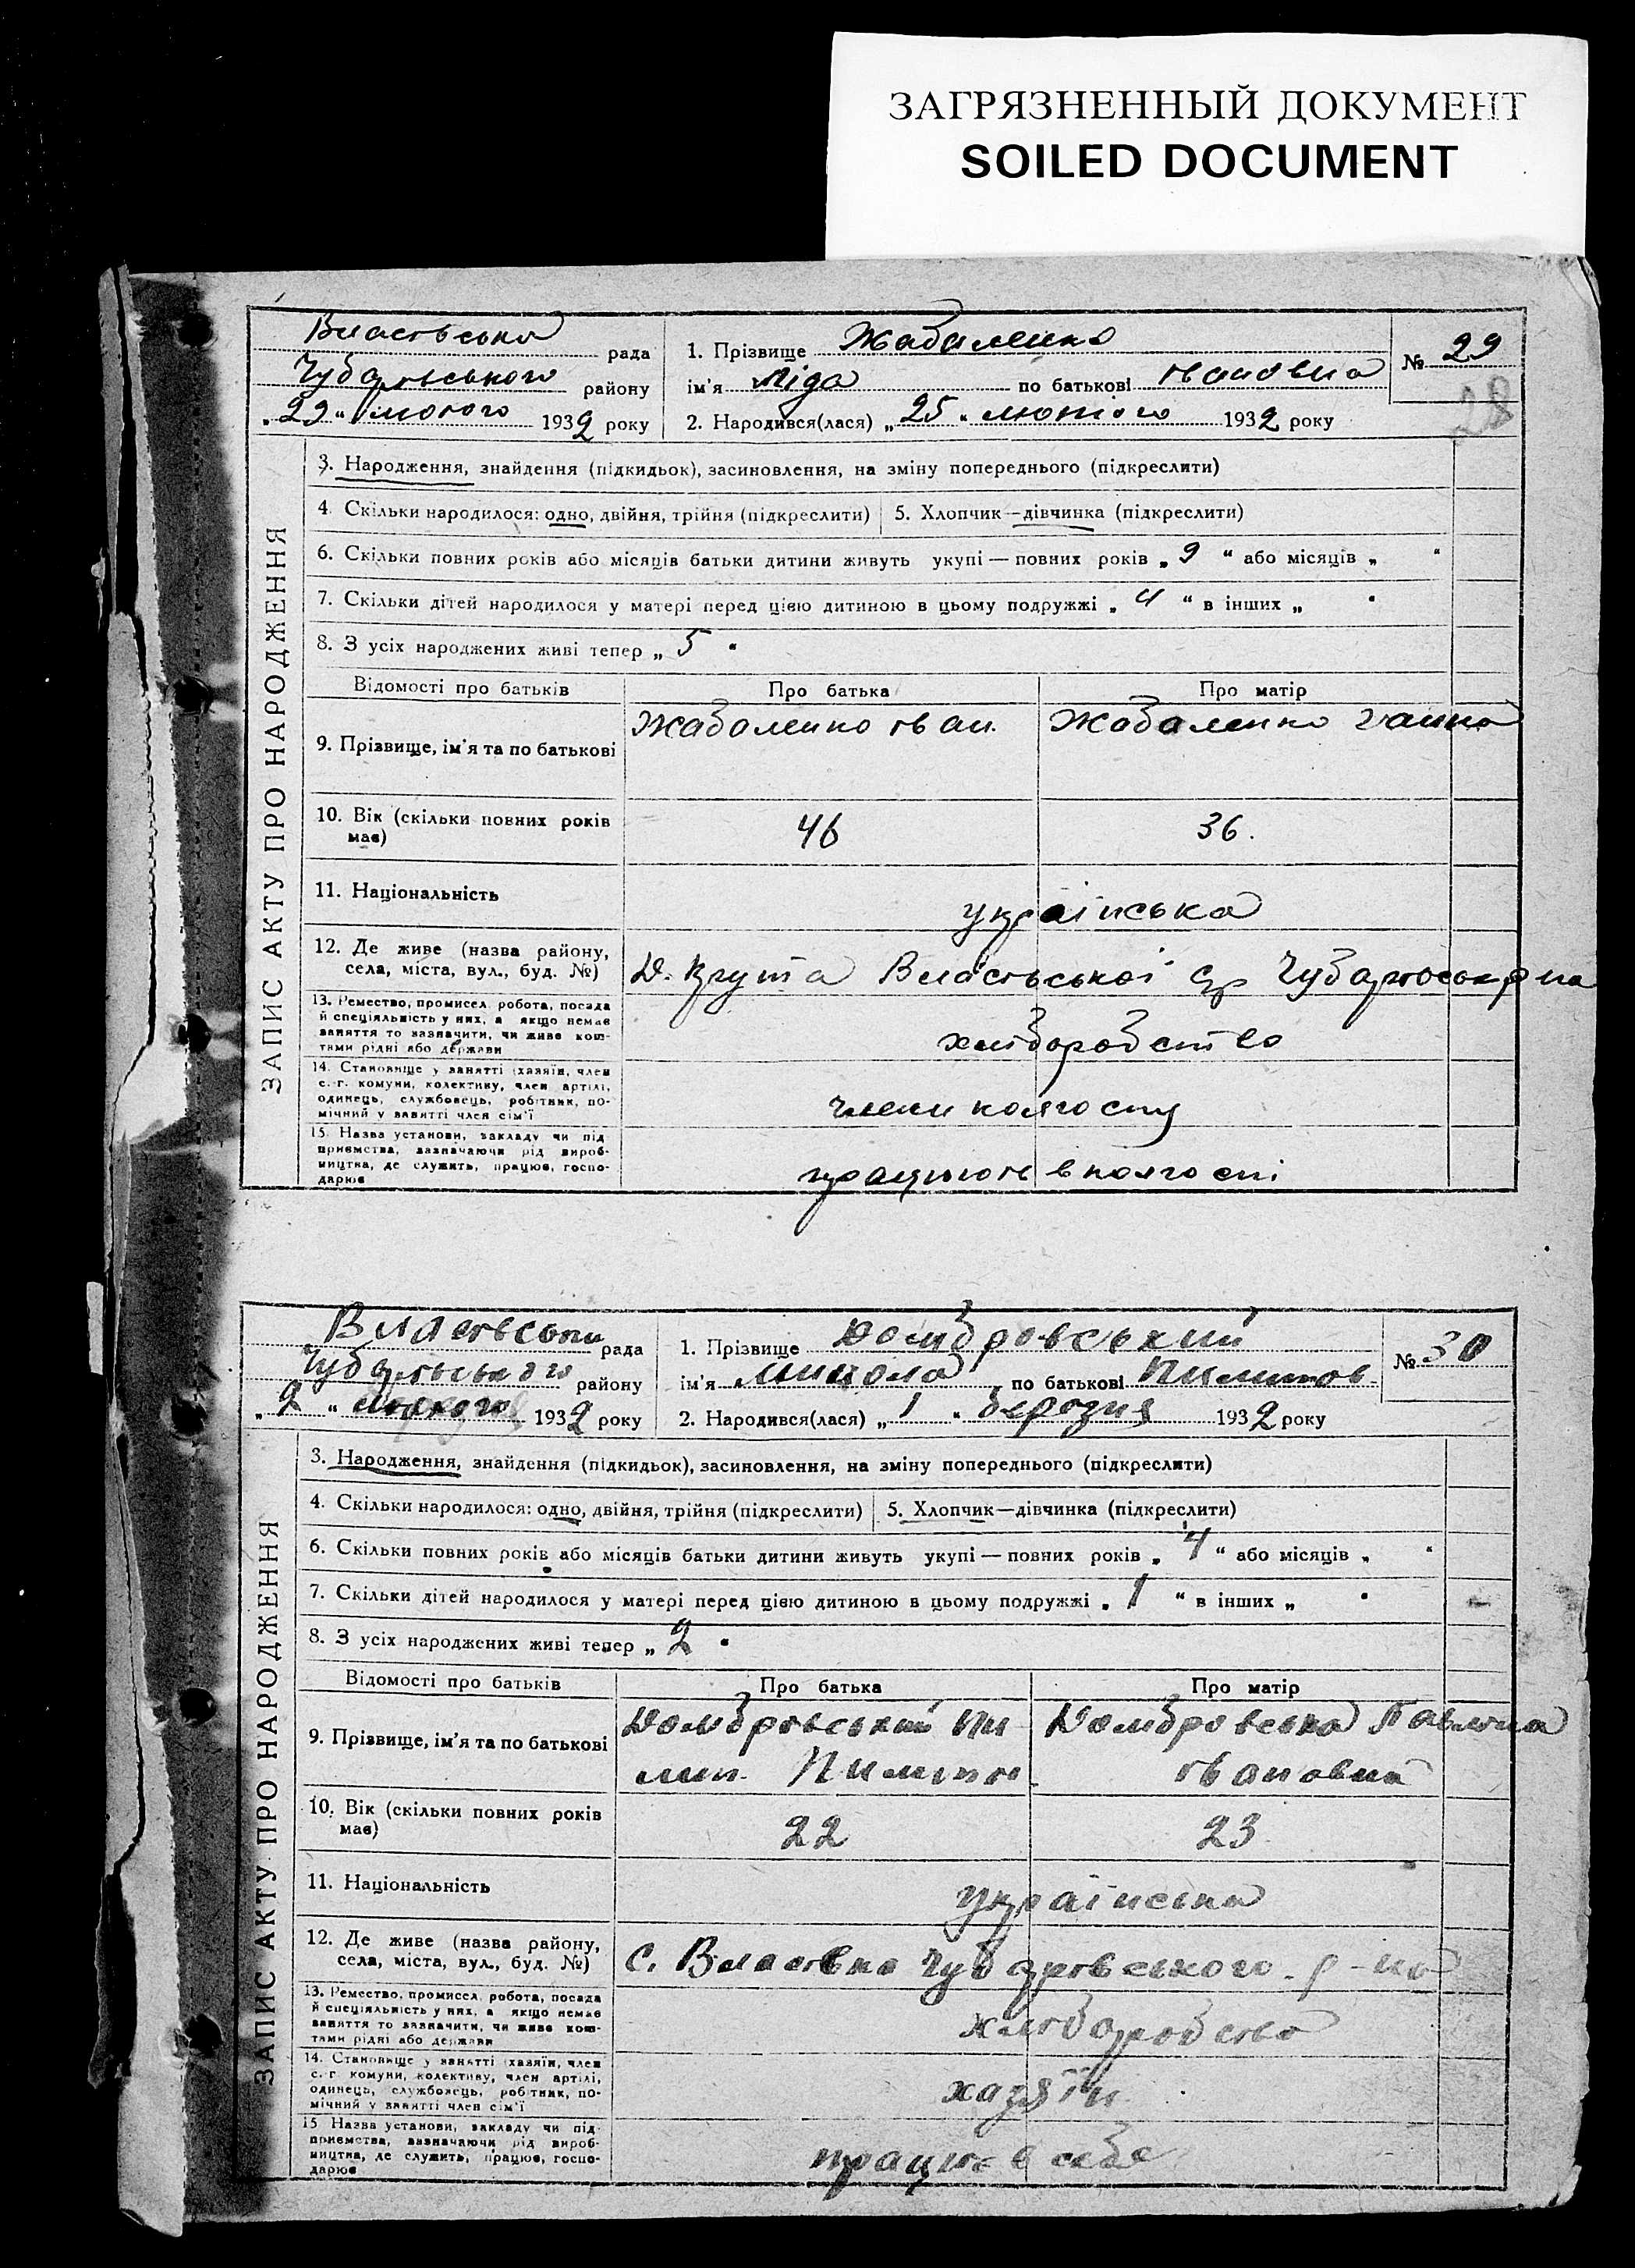 ЗАГРЯЗНЕННЫЙ ДОКУМЕНТ
SOILED DOCUMENT
рада
району
"29" лютого 1932 року
1. Прізвище Жабаленко
ім'я Ліда по батькові Івановна
2. Народився(лася) „25" лютого 1932 року
№ 29
28
ЗАПИС АКТУ ПРО НАРОДЖЕННЯ
3. Народження, знайдення (підкидьок), засиновлення, на зміну попереднього (підкреслити)
4. Скільки народилося: одно, двійня, трійня (підкреслити) 5. Хлопчик—дівчинка (підкреслити)
6. Скільки повних років або місяців батьки дитини живуть укупі — повних років „9" або місяців „ "
7. Скільки дітей народилося у матері перед цією дитиною в цьому подружжі „4" в інших „ "
8. З усіх народжених живі тепер „5"
Відомості про батьків Про батька Про матір
9. Прізвище, ім'я та по батькові Жабаленко Іван. Жабаленко Ганна
10. Вік (скільки повних років має) 46 36.
11. Національність українська
12. Де живе (назва району,
села, міста, вул., буд. №)
13. Ремество, промисел, робота, посада
й спеціяльність у них, а якщо немає
заняття то зазначити, чи живе кош-
тами рідні або держави
хліборобство
14. Становище у занятті (хазяїн, член
с.-г. комуни, колективу, член артілі,
одинець, службовець, робітник, по-
мічний у занятті член сім'ї
члени колгоспу
15. Назва установи, закладу чи під
приємства, зазначаючи рід вироб-
ництва, де служить, працює, госпо-
дарює
працюють в колгоспі
рада
району
„2" 1932 року
1. Прізвище Домбровський
ім'я Микола по батькові Пилипов
2. Народився(лася) „1" березня 1932 року
№ 30
ЗАПИС АКТУ ПРО НАРОДЖЕННЯ
3. Народження, знайдення (підкидьок), засиновлення, на зміну попереднього (підкреслити)
4. Скільки народилося: одно, двійня, трійня (підкреслити) 5. Хлопчик—дівчинка (підкреслити)
6. Скільки повних років або місяців батьки дитини живуть укупі — повних років „4" або місяців „ "
7. Скільки дітей народилося у матері перед цією дитиною в цьому подружжі „1" в інших „ "
8. З усіх народжених живі тепер „2"
Відомості про батьків Про батька Про матір
9. Прізвище, ім'я та по батькові
Домбровський Пи Домбровська Павлина
лип Івановна
10. Вік (скільки повних років має) 22 23
11. Національність українська
12. Де живе (назва району,
села, міста, вул., буд. №)
с. Власовка Чубаровського р-на
13. Ремество, промисел, робота, посада
й спеціяльність у них, а якщо немає
заняття то зазначити, чи живе кош-
тами рідні або держави
хліборобство
14. Становище у занятті (хазяїн, член
с.-г. комуни, колективу, член артілі,
одинець, службовець, робітник, по-
мічний у занятті член сім'ї
хазяїн
15. Назва установи, закладу чи під-
приємства, зазначаючи рід вироб-
ництва, де служить, працює, госпо-
дарює
працює в себе